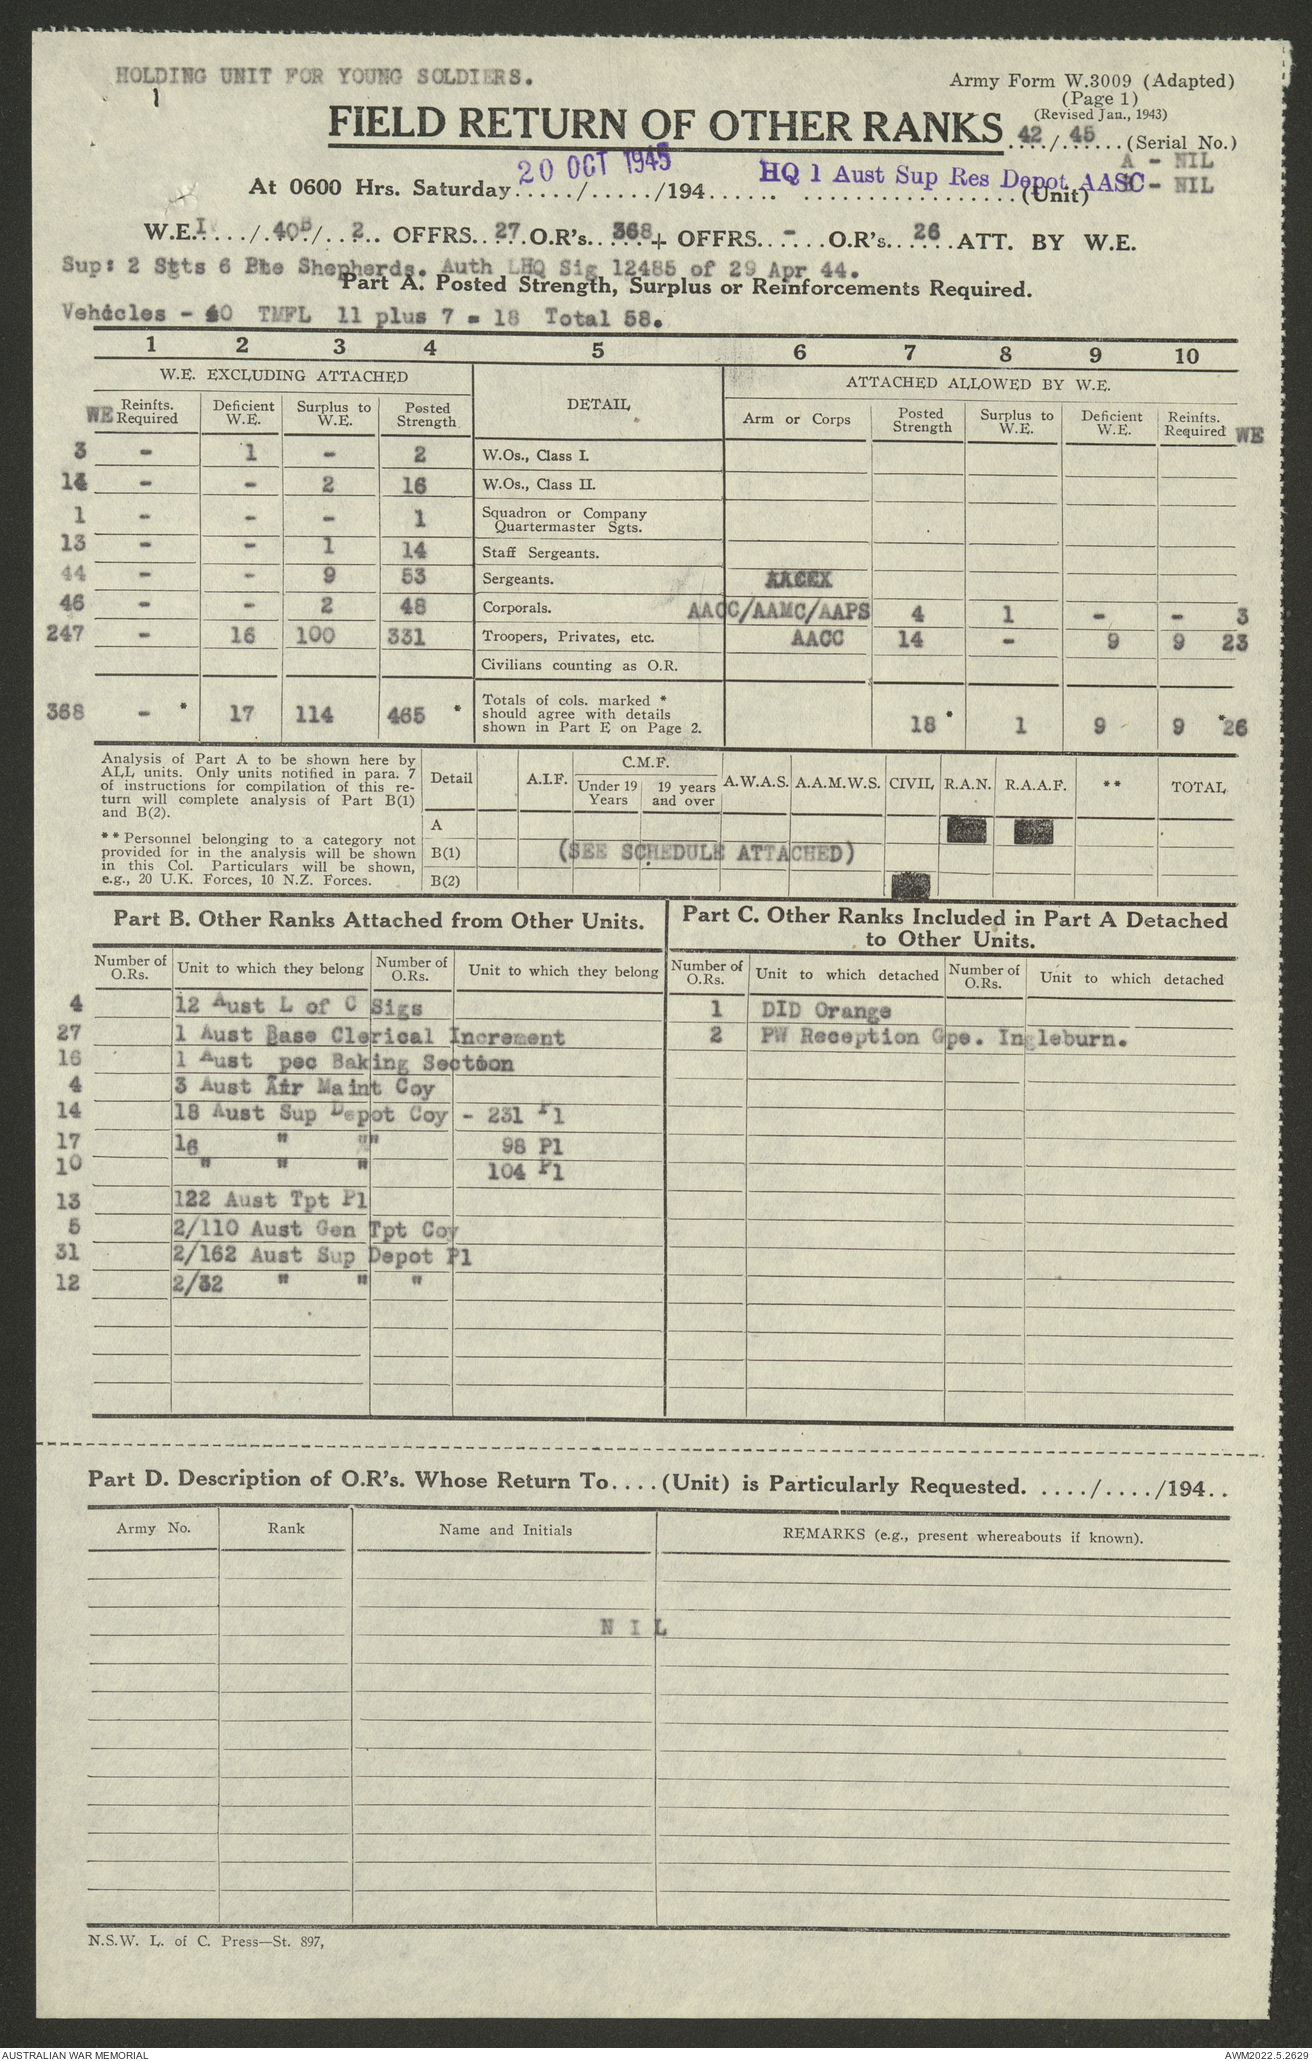 HOLDING UNIT FOR YOUNG SOLDIERS.
1
Army Form W.3009 (Adapted)
(Page 1)
(Revised Jan., 1943)
FIELD RETURN OF OTHER RANKS 42/45 (Serial No.)
A - NIL
At 0600 Hrs. Saturday...../...../194...... 20 OCT 1945 HQ 1 Aust Sup Res Depot AASC (Unit) - NIL
W.E. I..../.40B/..2.. OFFRS..27.O.R's..368+ OFFRS..-...O.R's...26 .ATT. BY W.E.
Sup: 2 Sgts 6 Pte Shepherds. Auth LHQ Sig 12485 of 29 Apr 44.
Part A. Posted Strength, Surplus or Reinforcements Required.
Vehicles - 40 TMFL 11 plus 7 = 18 Total 58.
1 2 3 4 5 6 7 8 9 10
W.E. EXCLUDING ATTACHED DETAIL ATTACHED ALLOWED BY W.E.
WE Reinfts. Required Deficient W.E. Surplus to W.E. Posted Strength Arm or Corps Posted Strength Surplus to W.E. Deficient W.E. Reinfts. Required WE
3 - 1 - 2 W.Os., Class I.
14 - - 2 16 W.Os., Class II.
1 - - - 1 Squadron or Company Quartermaster Sgts.
13 - - 1 14 Staff Sergeants.
44 - - 9 53 Sergeants.
46 - - 2 48 Corporals. AACC/AAMC/AAPS 4 1 - - 3
247 - 16 100 331 Troopers, Privates, etc. AACC 14 - 9 9 23
Civilians counting as O.R.
368 - * 17 114 465 * Totals of cols. marked * should agree with details shown in Part E on Page 2. 18 * 1 9 9 * 26
Analysis of Part A to be shown here by
ALL units. Only units notified in para. 7
of instructions for compilation of this re-
turn will complete analysis of Part B(1)
and B(2).
** Personnel belonging to a category not
provided for in the analysis will be shown
in this Col. Particulars will be shown,
e.g., 20 U.K. Forces, 10 N.Z. Forces.
Detail A.I.F. C.M.F. Under 19 Years 19 years and over A.W.A.S. A.A.M.W.S. CIVIL R.A.N. R.A.A.F. ** TOTAL
A
B(1) (SEE SCHEDULE ATTACHED)
B(2)
Part B. Other Ranks Attached from Other Units.
Number of O.Rs. Unit to which they belong Number of O.Rs. Unit to which they belong
4 12 Aust L of C Sigs
27 1 Aust Base Clerical Increment
16 1 Aust pec Baking Section
4 3 Aust Air Maint Coy
14 18 Aust Sup Depot Coy - 231 Pl
17 16 " "" 98 Pl
10 " " " 104 Pl
13 122 Aust Tpt Pl
5 2/110 Aust Gen Tpt Coy
31 2/162 Aust Sup Depot Pl
12 2/32 " " "
Part C. Other Ranks Included in Part A Detached
to Other Units.
Number of O.Rs. Unit to which detached Number of O.Rs. Unit to which detached
1 DID Orange
2 PW Reception Gpe. Ingleburn.
Part D. Description of O.R's. Whose Return To....(Unit) is Particularly Requested. ..../..../194..
Army No. Rank Name and Initials REMARKS (e.g., present whereabouts if known).
N I L
N.S.W. L. of C. Press—St. 897,
AUSTRALIAN WAR MEMORIAL
AWM2022.5.2629